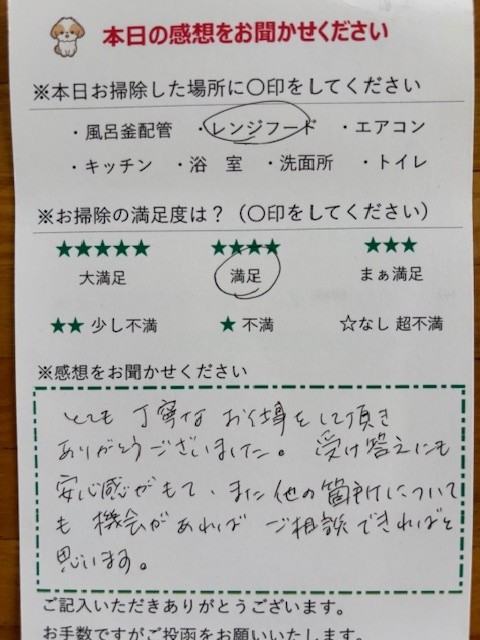 本日の感想をお聞かせください
※本日お掃除した場所に〇印をしてください
・風呂釜配管 ・レンジフード ・エアコン
・キッチン ・浴 室 ・洗面所 ・トイレ
※お掃除の満足度は？（〇印をしてください）
★★★★★ ★★★★ ★★★
大満足 満足 まぁ満足
★★ 少し不満 ★ 不満 ☆なし 超不満
※感想をお聞かせください
とても丁寧なお仕事をして頂き
ありがとうございました。受け答えにも
安心感がもて、また他の箇所について
も機会があればご相談できればと
思います。
ご記入いただきありがとうございます。
お手数ですがご投函をお願いいたします。